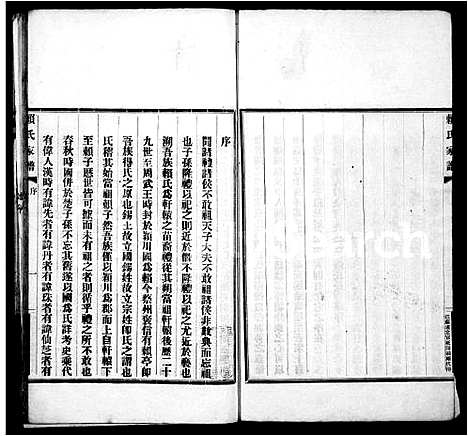 賴氏家譜
序
聞諸禮諸侯不敢祖天子大夫不敢祖諸侯非數典而忘祖
也必其子孫隆禮以祀之則近於僭不隆禮以祀之尤近於褻也
溯吾族賴氏爲軒轅之苗裔禮從其朔當祖軒轅後歷二十
九世至周武王時封於潁川國爲賴今蔡州褒信有賴亭卽
吾族得氏之原也錫土故立國錫姓故立宗姓卽氏之謂也
氏稽其始當祖賴子然吾族僅以潁川爲郡而上自軒轅下
至賴子歷世皆可按而未有祖之者則循乎禮之所不敢也
春秋時國併於楚子孫不忘其舊遂以國爲氏詳考史乘代
有偉人漢時有諱先者有諱丹者有諱珠者有諱仙芝者有
賴氏家譜
序